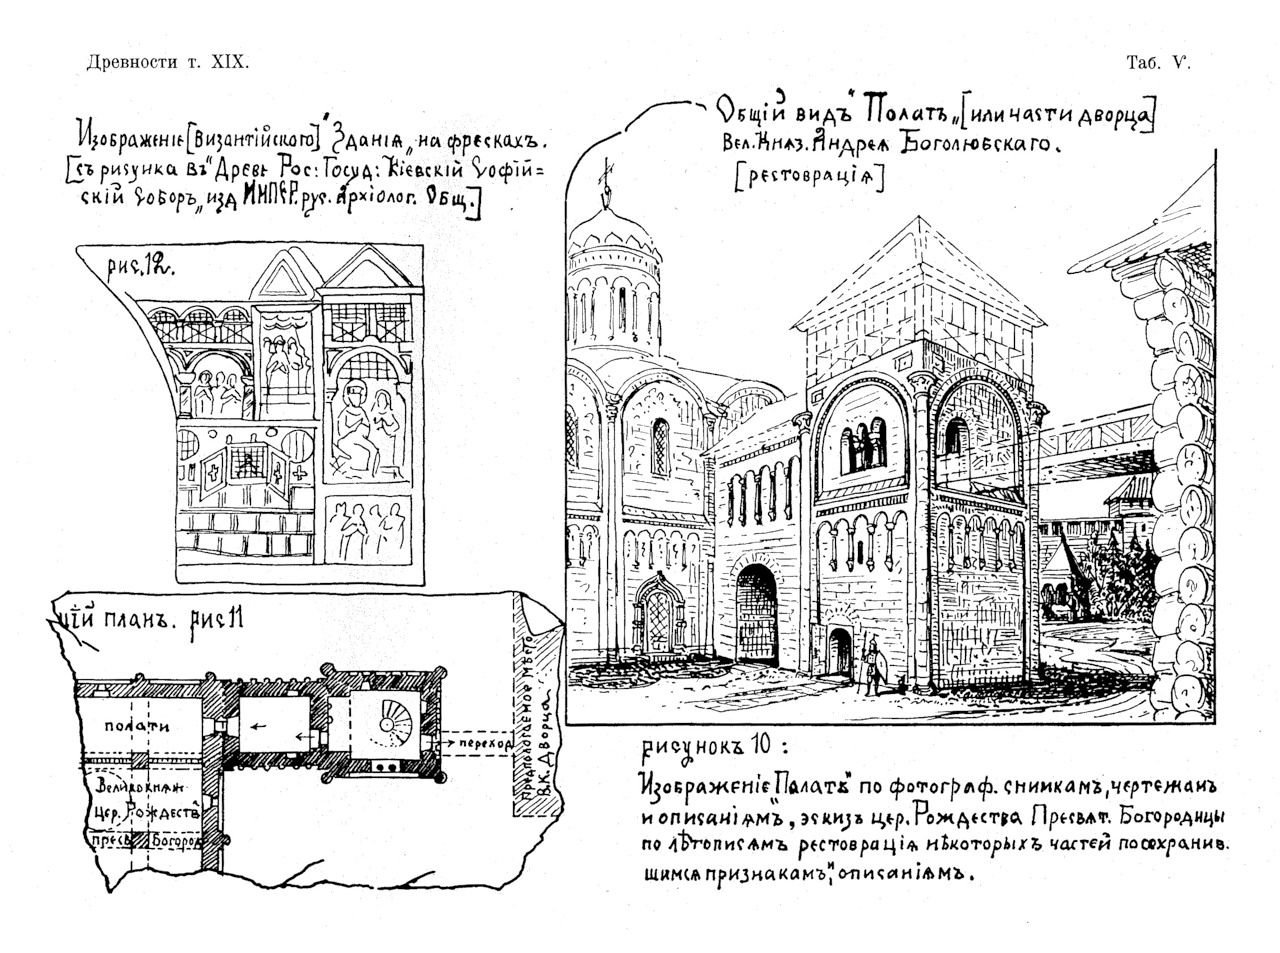 Древности т. XIX.
Таб. V.
Изображеніе [византійского] „Зданія„ на фрескахъ.
[съ рисунка въ "Древн Рос: Госуд: Кіевскій Софій=
скій Соборъ„ изд ИМПЕР. рус. Архіолог. Общ.]
рис. 12.
Общій видъ "Полатъ„ [или части дворца]
Вел. Княз. Андрея Боголюбскаго.
[рестоврація]
щій планъ. рис 11
полати
Великокняж
Цер. Рождеств
пресв Богород
переход
Предпологаемое мѣсто
В.К. Дворца
рисунокъ 10:
Изображеніе "Полатъ" по фотограф. снимкамъ, чертежамъ
и описаніямъ, эскизъ цер. Рождества Пресвят. Богородицы
по лѣтописямъ рестоврація нѣкоторыхъ частей по сохранив.
шимся признакамъ и описаніямъ.